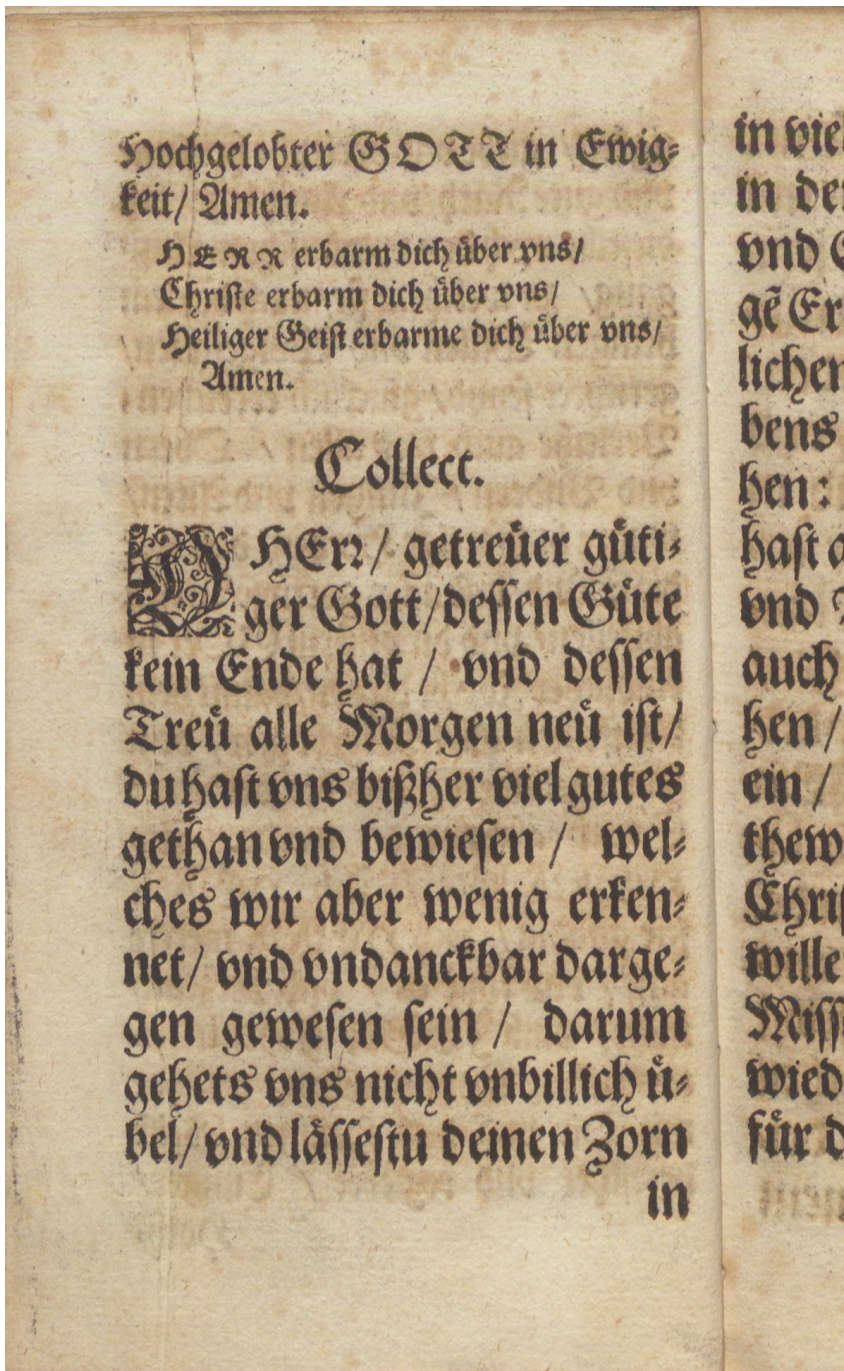 Hochgelobter GOTT in Ewig-
keit/ Amen.
HERR erbarm dich über vns/
Christe erbarm dich über vns/
Heiliger Geist erbarme dich über vns/
Amen.
Collect.
O HErr/ getreüer güti-
ger Gott/dessen Güte
kein Ende hat / vnd dessen
Treü alle Morgen neü ist/
du hast vns bißher viel gutes
gethan vnd bewiesen / wel-
ches wir aber wenig erken-
net/ vnd vndanckbar darge-
gen gewesen sein / darum
gehets vns nicht vnbillich ü-
bel/ vnd lässestu deinen Zorn
in
in viel
in de
vnd
gẽ Er
lichen
bens
hen:
hast
vnd
auch
hen/
ein /
thew
Chris
wille
Miss
wied
für d